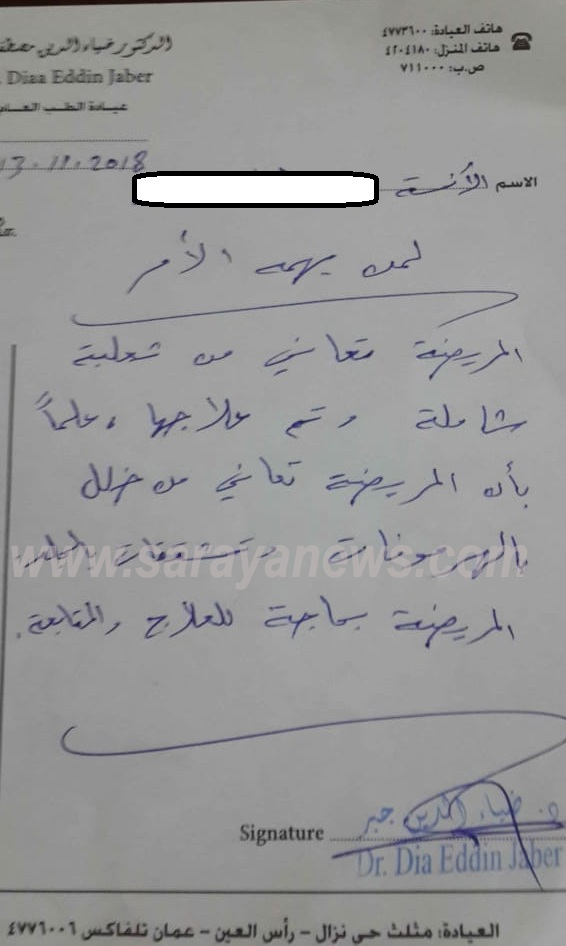 هاتف العيادة: ٤٧٧٣٦٠٠
هاتف المنزل: ٤٢٠٤١٨٠
ص.ب: ٧١١٠٠٠
الدكتور ضياء الدين مصطفى
Diaa Eddin Jaber
عيادة الطب العام
13.11.2018
الاسم الآنسة
لمن يهمه الأمر
المريضة تعاني من ثعلبة
شاملة وتم علاجها، علماً
بأن المريضة تعاني من خلل
بالهرمونات وتشققات بالجلد
المريضة بحاجة للعلاج والمتابعة.
www.sarayanews.com
د. ضياء الدين جبر
Signature
Dr. Dia Eddin Jaber
العيادة: مثلث حي نزال - رأس العين - عمان تلفاكس ٤٧٧٦٠٠٦